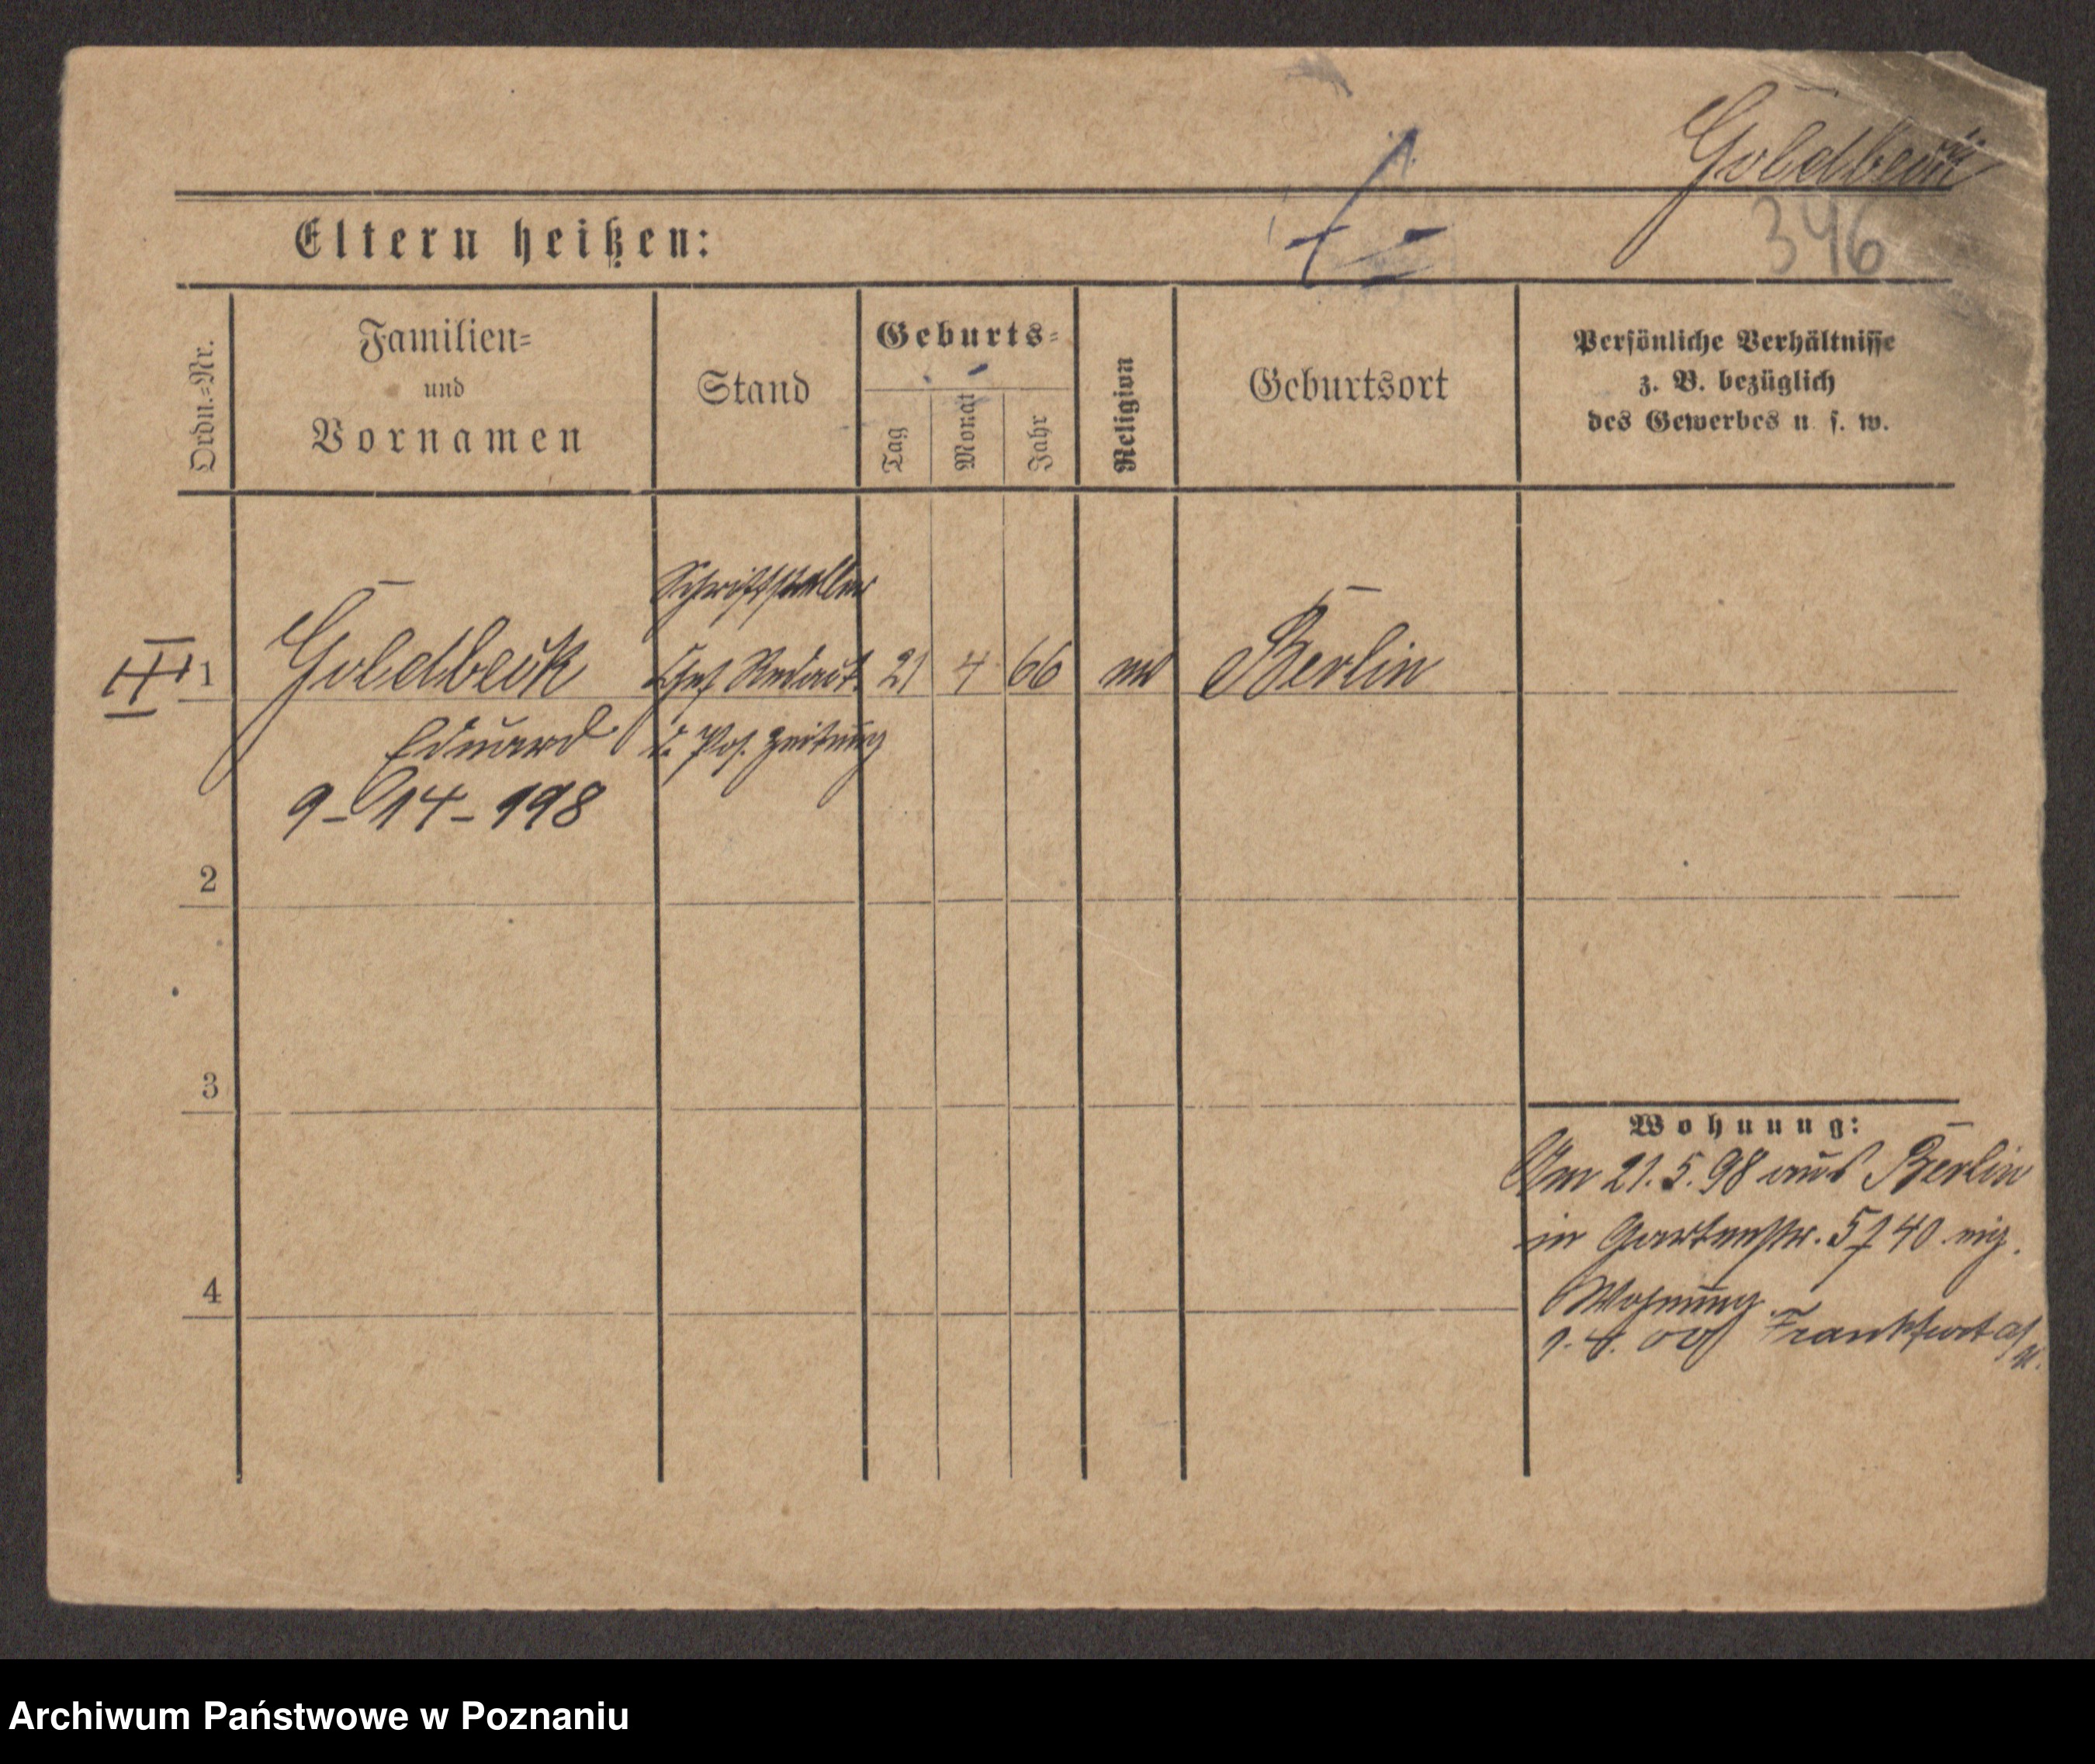 Goldbeck
346
Eltern heißen:
Ordn.-Nr.
Familien-
und
Vornamen
Stand
Geburts-
Tag
Monat
Jahr
Religion
Geburtsort
Persönliche Verhältnisse
z. B. bezüglich
des Gewerbes u. s. w.
Schriftsteller
III 1 Goldbeck Chef Redact. 21 4 66 ev Berlin
Eduard d. Pos. Zeitung
9-14-198
2
3
4
Wohnung:
Am 21.5.98 aus Berlin
in Gartenstr. 5 f 40 eig.
Wohnung
Frankfurt a/M.
Archiwum Państwowe w Poznaniu